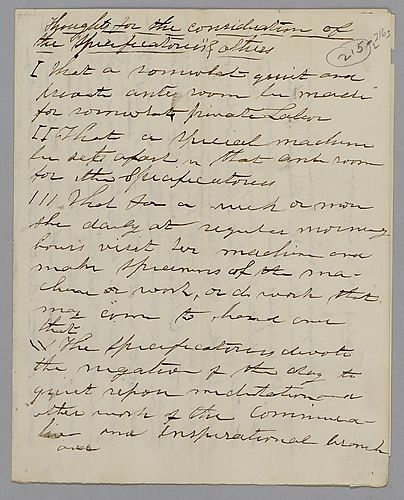 Thoughts for the consideration of
the Specificatoress & others
215 216
I That a somewhat quiet and
private ante room be made
for somewhat private Labor
II That a special machine
be set apart in that ante room
for the Specificatoress
III That for a week or more
she daily at regular morning
hours visit her machine and
make specimens of the ma-
chine or work, or do work, that
may come to hand and
that
The Specificatoress devote
the negative of the day to
quiet repose meditation and
other work of the Communica-
tive and Inspirational branch
and